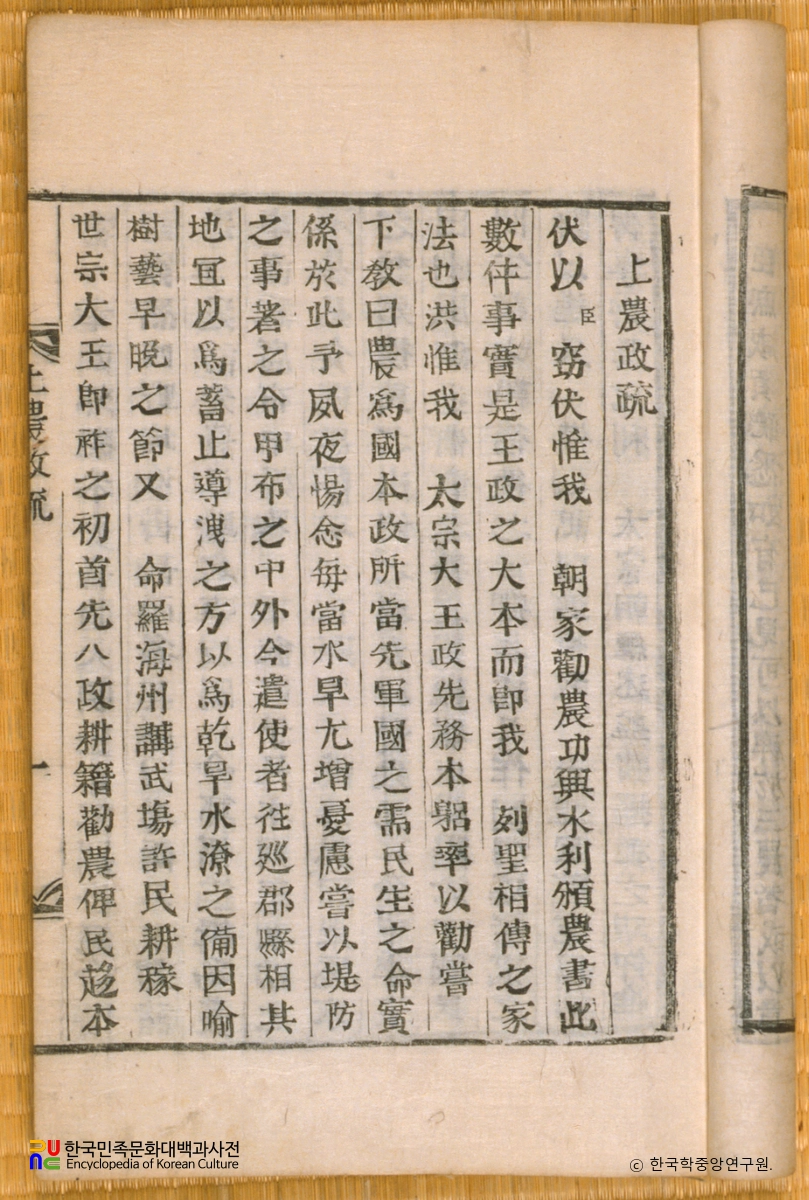 上農政疏
伏以臣竊伏惟我 朝家勸農功興水利頒農書此
數件事實是王政之大本而卽我 列聖相傳之家
法也洪惟我 太宗大王政先務本躬率以勸嘗
下敎曰農爲國本政所當先軍國之需民生之命實
係於此予夙夜惕念每當水旱尤增憂慮嘗以堤防
之事著之令甲布之中外今遣使者往巡郡縣相其
地宜以爲蓄止導洩之方以爲乾旱水潦之備因喻
樹藝早晩之節又 命羅海州講武塲許民耕稼
世宗大王卽祚之初首先八政耕籍勸農俾民趍本
上農政疏
一
한국민족문화대백과사전
Encyclopedia of Korean Culture
ⓒ 한국학중앙연구원.